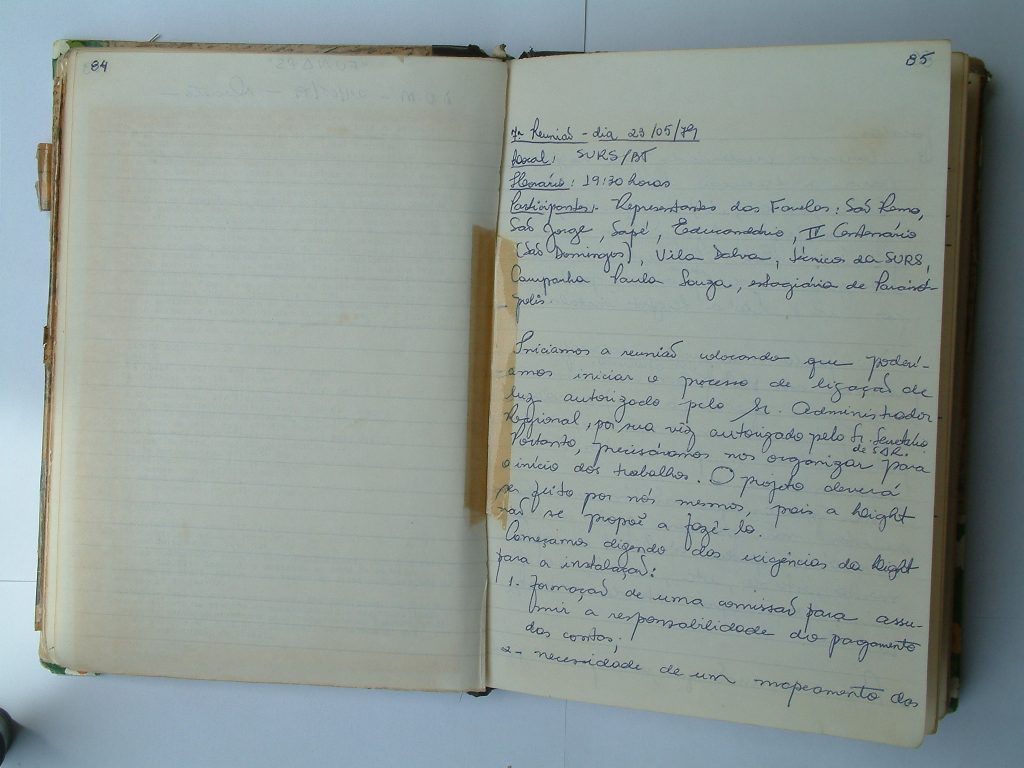 84
85
7ª Reunião - dia 23/05/79
Local: SURS/BT
Horário: 19:30 horas
Participantes:- Representantes das Favelas: São Remo,
São Jorge, Sapé, Educandário, IV Centenário
(São Domingos), Vila Dalva, técnicos da SURS,
Campanha Paula Souza, estagiária de Paraisó-
polis.
Iniciamos a reunião colocando que poderí-
amos iniciar o processo de ligação de
luz autorizado pelo Sr. Administrador
Regional, por sua vêz autorizado pelo Sr. Secretário
de SAR.
Portanto, precisávamos nos organizar para
o início dos trabalhos. O projeto deverá
ser feito por nós mesmos, pois a Light
não se propõe a fazê-lo.
Começamos dizendo das exigências da Light
para a instalação:
1- Formação de uma comissão para assu-
mir a responsabilidade do pagamento
das contas;
2- necessidade de um mapeamento das